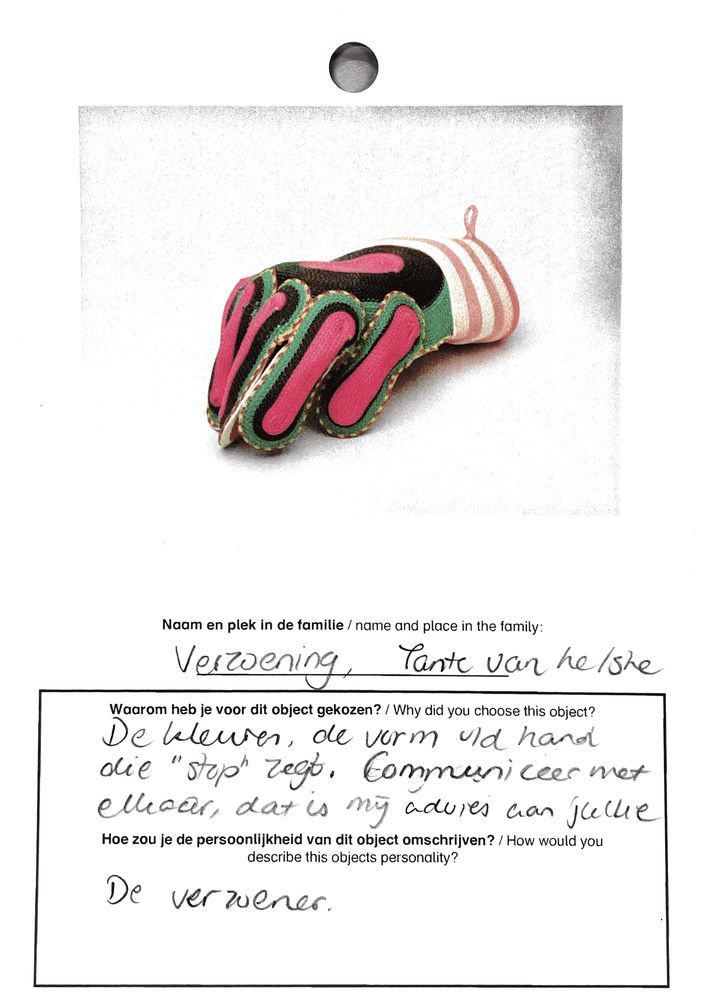 Naam en plek in de familie / name and place in the family:
Verzoening, Tante van he/she
Waarom heb je voor dit object gekozen? / Why did you choose this object?
De kleuren, de vorm v/d hand
die "stop" zegt. Communiceer met
elkaar, dat is mij advies aan jullie
Hoe zou je de persoonlijkheid van dit object omschrijven? / How would you
describe this objects personality?
De verzoener.